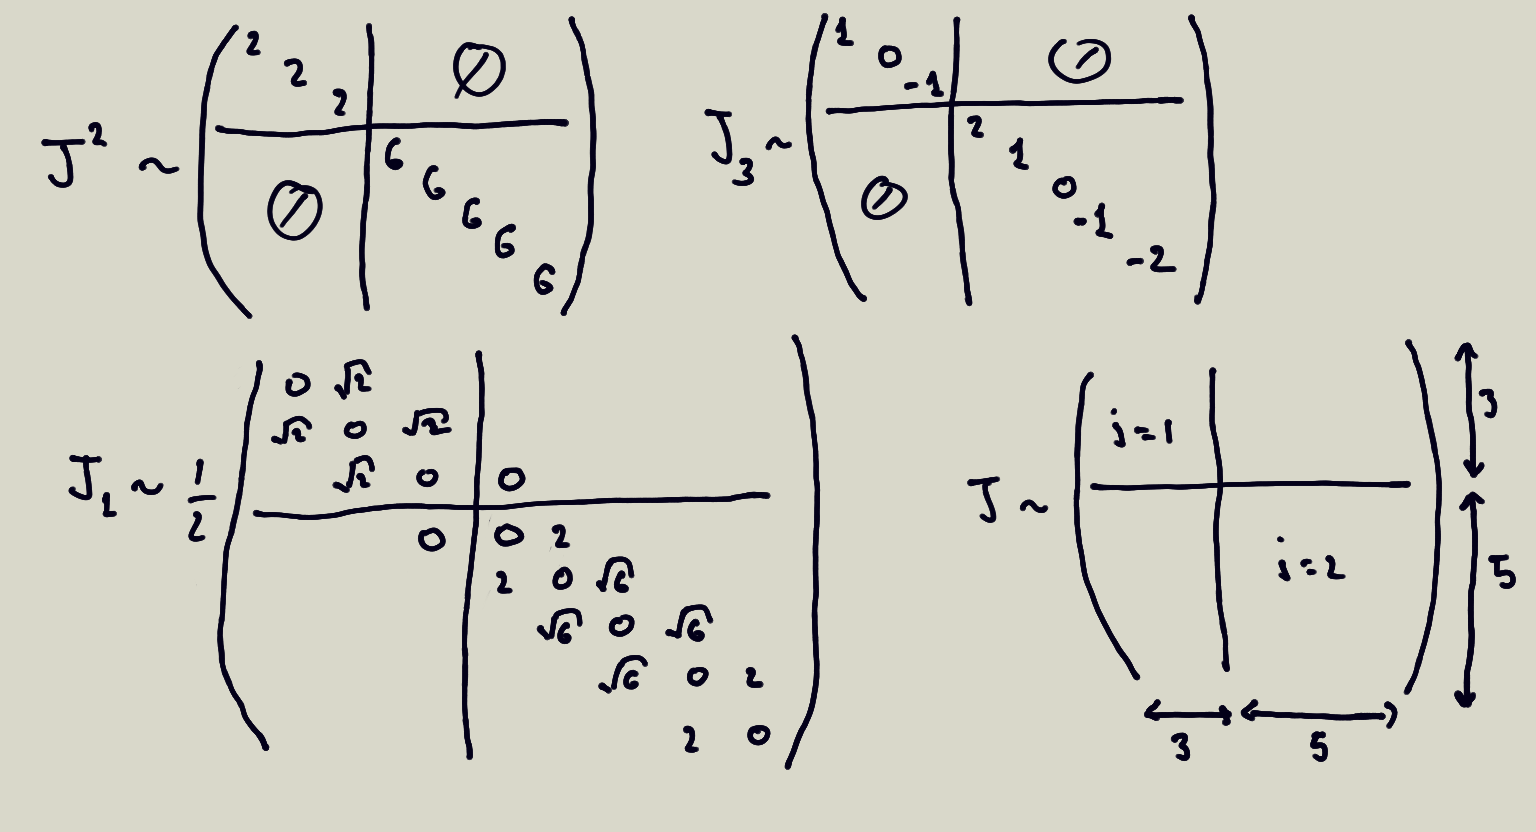 J² ~ ( 2 2 2 | 0 / 0 | 6 6 6 6 6 )
J₃ ~ ( 1 0 -1 | 0 / 0 | 2 1 0 -1 -2 )
J₁ ~ 1/2
0 √2
√2 0 √2
√2 0 0
0 0 2
2 0 √6
√6 0 √6
√6 0 2
2 0
J ~ ( j=1 | j=2 )
3
5
3 5